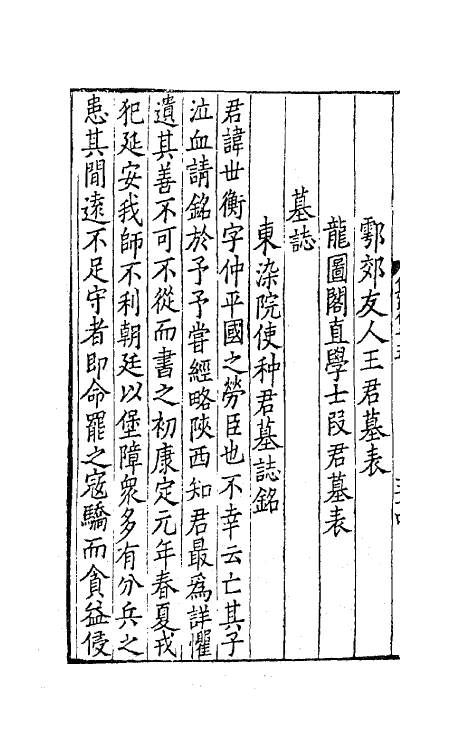 鄠郊友人王君墓表
龍圖閣直學士段君墓表
墓誌
東染院使种君墓誌銘
君諱世衡字仲平國之勞臣也不幸云亡其子
泣血請銘於予予嘗經略陝西知君最爲詳懼
遺其善不可不從而書之初康定元年春夏戎
犯延安我師不利朝廷以堡障衆多有分兵之
患其間遠不足守者即命罷之寇驕而貪益侵